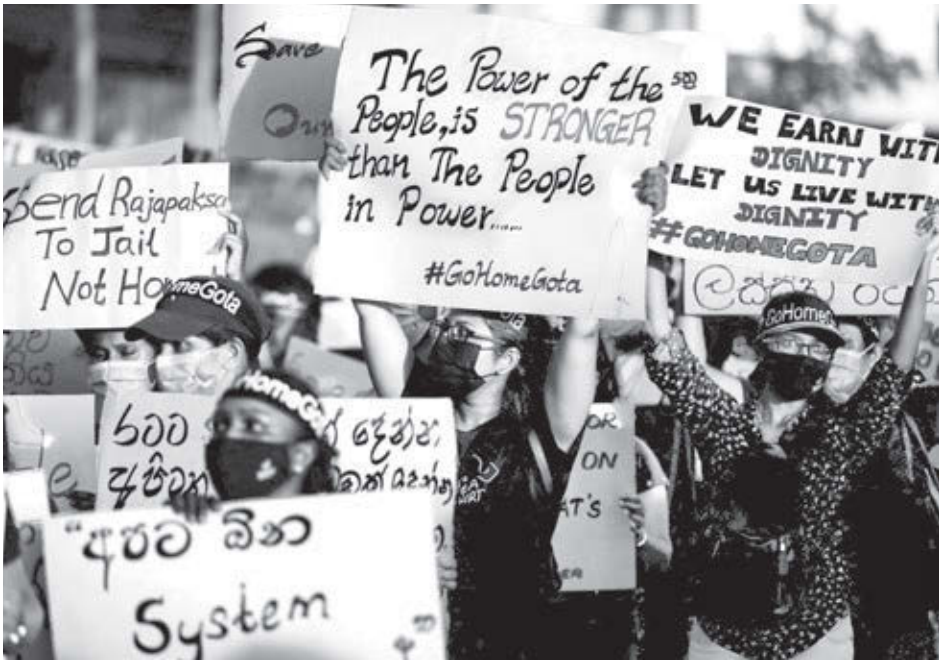 Save
The Power of the
People, is STRONGER
than The People
in Power....
#GoHomeGota
WE EARN WITH
DIGNITY
LET US LIVE WITH
DIGNITY
#GOHOMEGOTA
Send Rajapaksa
To Jail
Not Ho
meGota
GoHomeG
HomeGo
රටට
දෙන්න
OR
ON
AT'S
"අපට ඕන
System